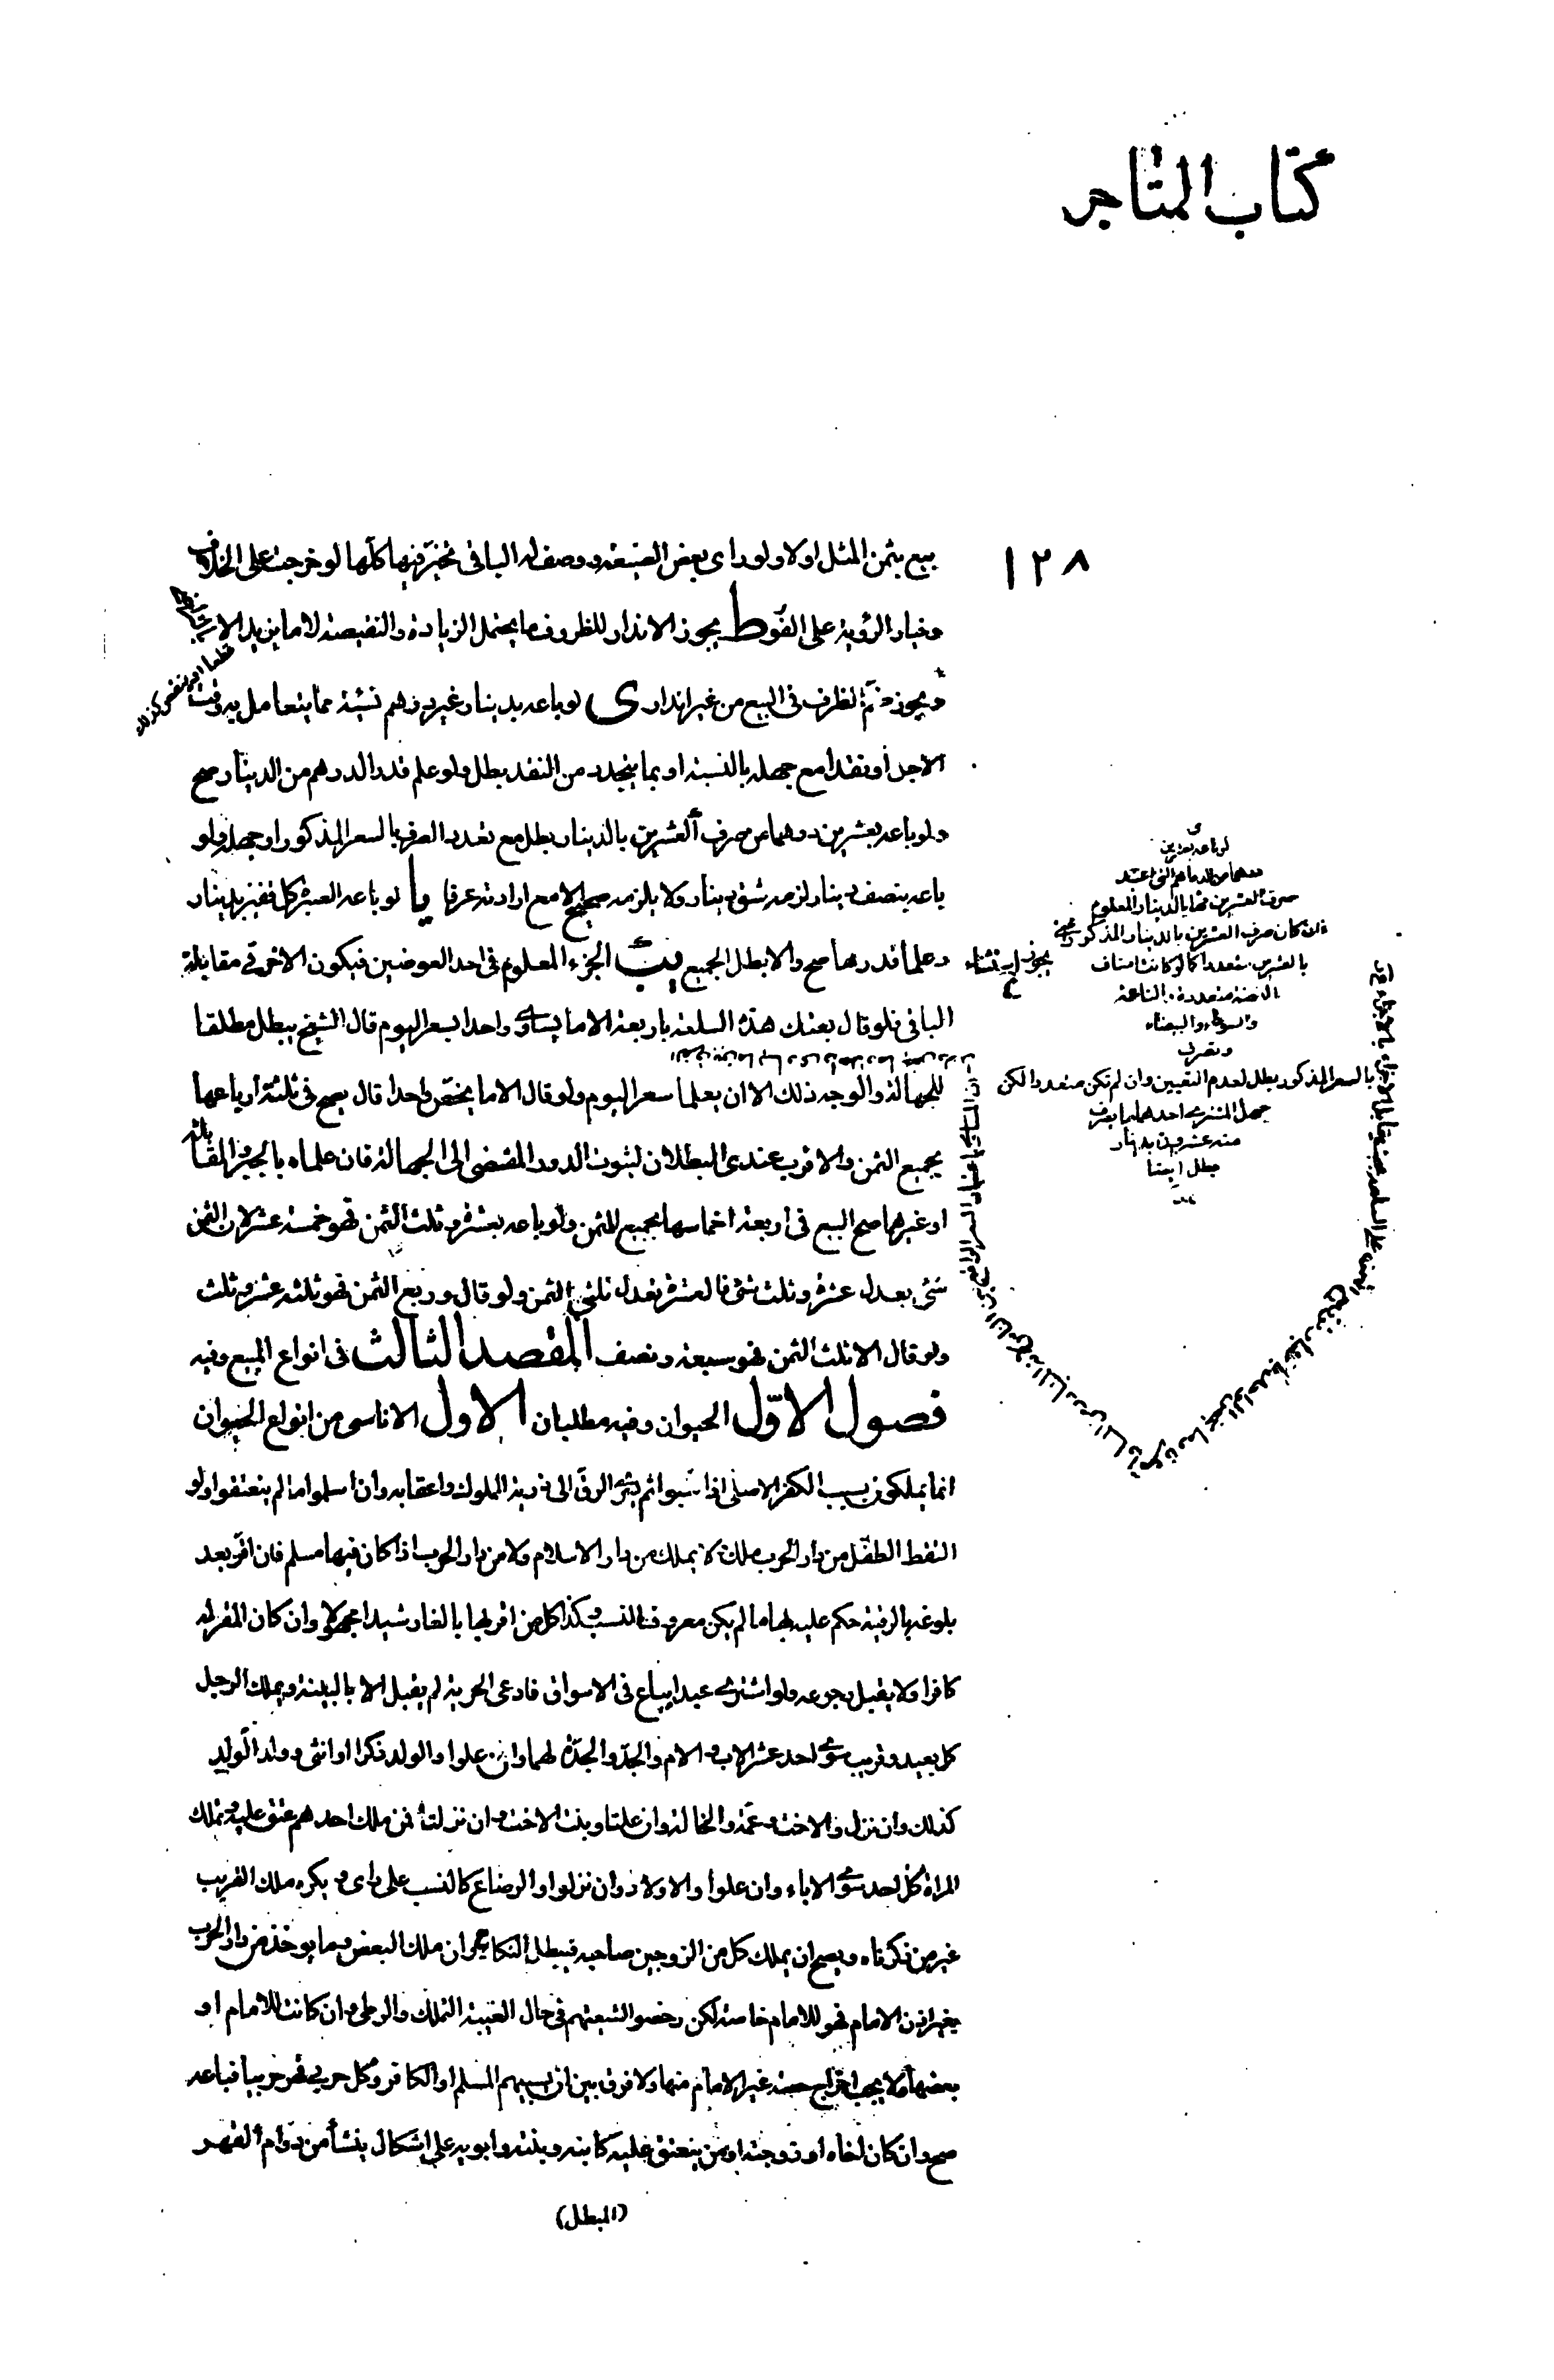 كتاب المتاجر
١٢٨
بيع بثمن المثل اولا ولو رای بعض الضيعة ووصف له الباقی تخير فيها كلها لو خرجت علی الخلاف
وخيار الرؤية علی الفور ط يجوز الاندار للظروف ما يحتمل الزيادة والنقيصة لا ما يزيد الا
ويجوز ضم الظرف فی البيع من غير اندار ی لو باعه بدينار غير درهم نسئة مما يتعامل به وقت
الاجل او نقدا مع جهله بالنسبة او بما يتجدد من النقد بطل ولو علم قدر الدرهم من الدينار صح
ولو باعه بعشرين درهما من صرف العشرين بالدينار بطل مع تعدد الصرف بالسعر المذكور او جهله ولو
باعه بنصف دينار لزمه شق دينار ولا يلزمه صحيح الا مع ارادته عرفا يا لو باعه العبرة كل قفيز بدينار
وعلما قدرها صح والا بطل الجميع يب يجوز استثناء الجزء المعلوم فی احد العوضين فيكون الاخر فی مقابلة
الباقی فلو قال بعتك هذه السلعة باربعة الا ما يساوی واحدا بسعر اليوم قال الشيخ يبطل مطلقا
للجهالة والوجه ذلك الا ان يعلما سعر اليوم ولو قال الا ما يخص واحدا قال يصح فی ثلثة ارباعها
بجميع الثمن والاقرب عندی البطلان لثبوت الدور المفضی الی الجهالة فان علماه بالجبر والمقابلة
او غيرها صح البيع فی اربعة اخماسها بجميع الثمن ولو باعه بعشرة وثلث الثمن فهو خمسة عشر لان الثمن
شیء يعدل عشرة وثلث شیء فالعشرة تعدل ثلثی الثمن ولو قال وربع الثمن فهو ثلثة عشر وثلث
ولو قال الا ثلث الثمن فهو سبعة ونصف المقصد الثالث فی انواع المبيع وفيه
فصول الاول الحيوان وفيه مطلبان الاول الاناسی من انواع الحيوان
انما يملكون بسبب الكفر الاصلی اذا سبوا ثم يسری الرق الی ذرية المملوك واعقابه وان اسلموا ما لم ينعتقوا ولو
التقط الطفل من دار الحرب ملك ولا يملك من دار الاسلام ولا من دار الحرب اذا كان فيها مسلم فان اقر بعد
بلوغه بالرقية حكم عليه بها ما لم يكن معروف النسب وكذا كل من اقر بها بالغا رشيدا مجهولا وان كان المقر له
كافرا ولا يقبل رجوعه ولو اشتری عبدا يباع فی الاسواق فادعی الحرية لم يقبل الا بالبينة ويملك الرجل
كل بعيد وقريب سوی احد عشر الاب والام والجد والجدة لهما وان علوا والولد ذكرا او انثی وولد الولد
كذلك وان نزل والاخت والعمة والخالة وان علتا وبنت الاخت وان نزلت فمن ملك احدهم عتق عليه وتملك
المراة كل احد سوی الاباء وان علوا والاولاد وان نزلوا والرضاع كالنسب علی رای ويكره ملك القريب
غير من ذكرناه ويصح ان يملك كل من الزوجين صاحبه فيبطل النكاح وان ملك البعض وما يوخذ من دار الحرب
بغير اذن الامام فهو للامام خاصة لكن رخصوا لشيعتهم فی حال الغيبة التملك والوطی وان كانت للامام او
بعضها ولا يجب اخراج حصة غير الامام منها ولا فرق بين ان يسبيهم المسلم او الكافر وكل حربی قهر حربيا فباعه
صح وان كان اخاه او زوجته او من ينعتق عليه كابنه وبنته وابويه علی اشكال ينشأ من دوام القهر
(المبطل)
ی
لو باعه بعشرين
درهما من الدراهم التی عند
صرف العشرين منها بالدينار المعلوم
فان كان صرف العشرين بالدينار المذكور
بالعشرين متعددا كما لو كانت اصناف
الفضة متعددة
والسوداء والبيضاء
وتصرف
بالسعر المذكور بطل لعدم التعيين وان لم تكن متعددا لكن
جهل المشتری احدهما بما يصرف
منه عشرون بدينار
بطل ايضا